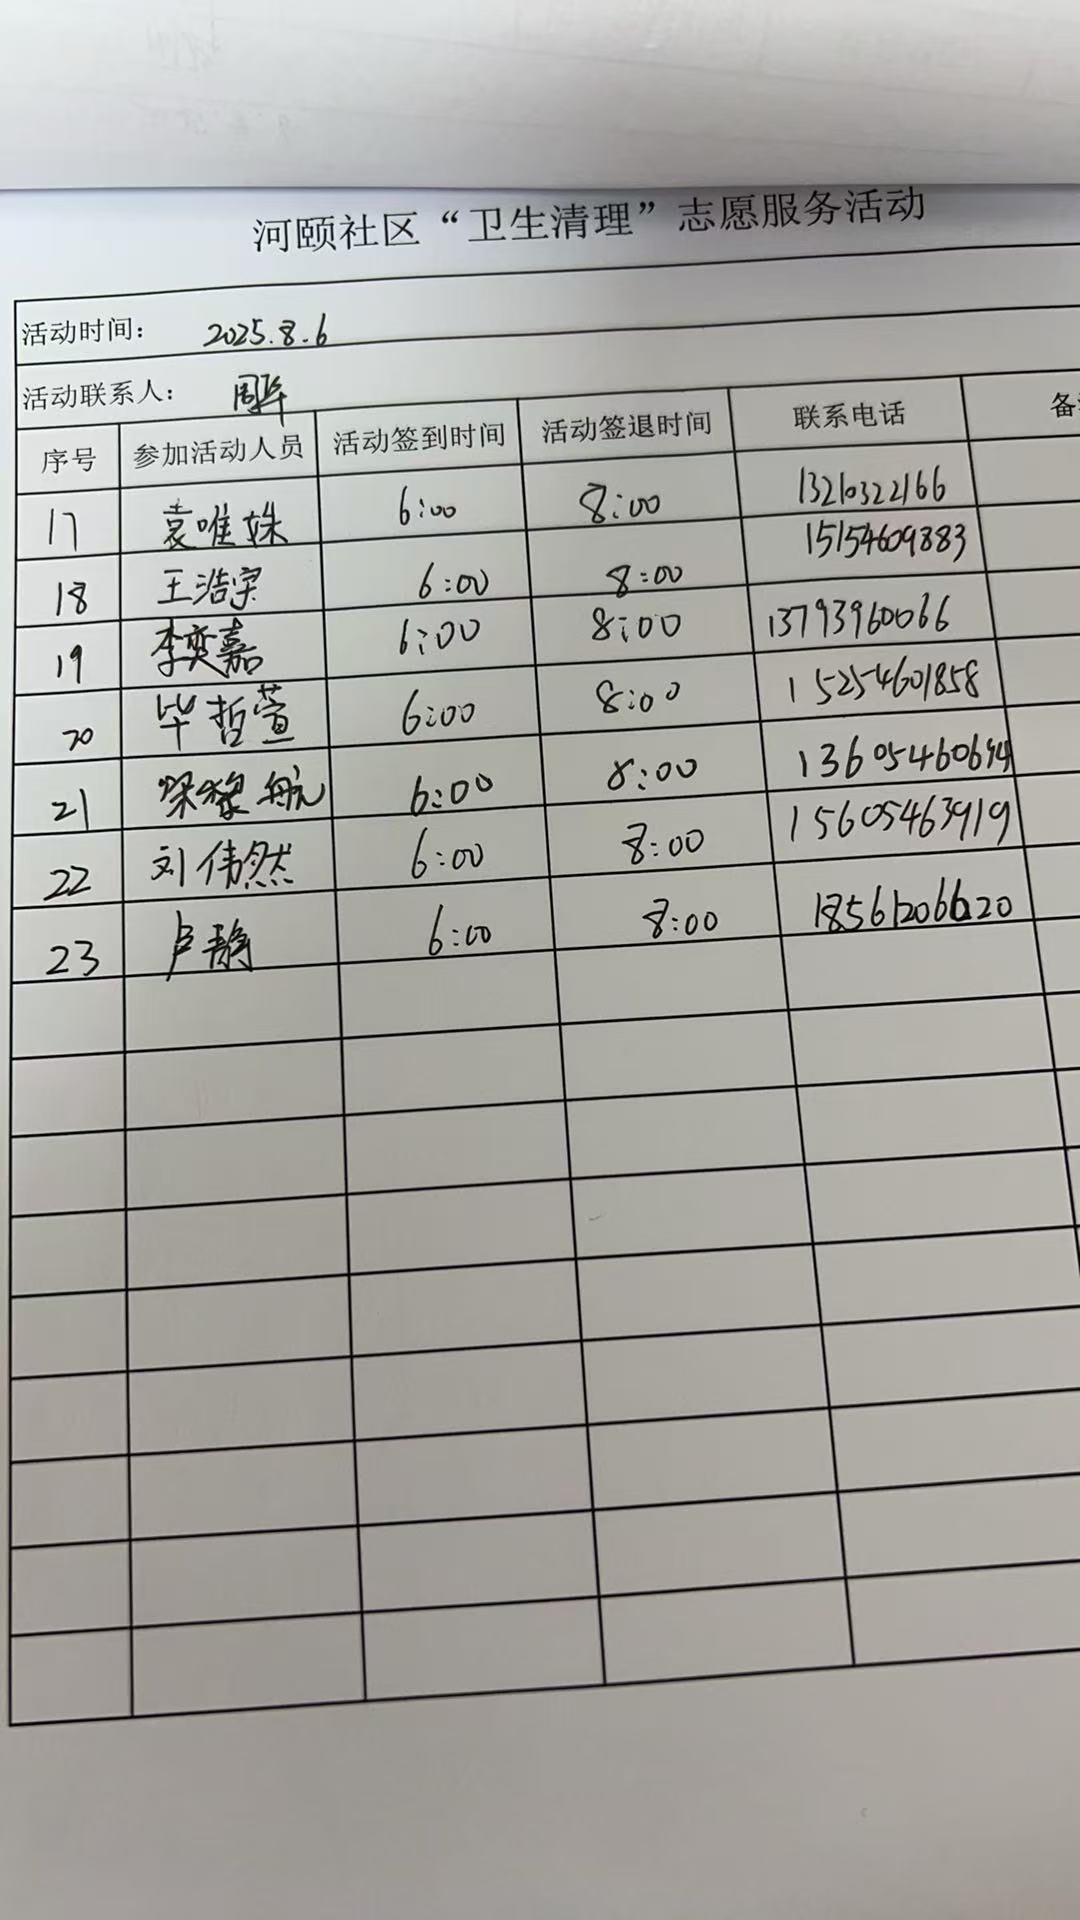 河颐社区“卫生清理”志愿服务活动
活动时间： 2025.8.6
活动联系人： 周华
序号 参加活动人员 活动签到时间 活动签退时间 联系电话 备
17 袁唯姝 6:00 8:00 13210322166
18 王浩宇 6:00 8:00 15154609883
19 李奕嘉 6:00 8:00 13793960066
20 毕哲萱 6:00 8:00 15254601858
21 梁黎航 6:00 8:00 13605460694
22 刘伟然 6:00 8:00 15605463919
23 卢静 6:00 8:00